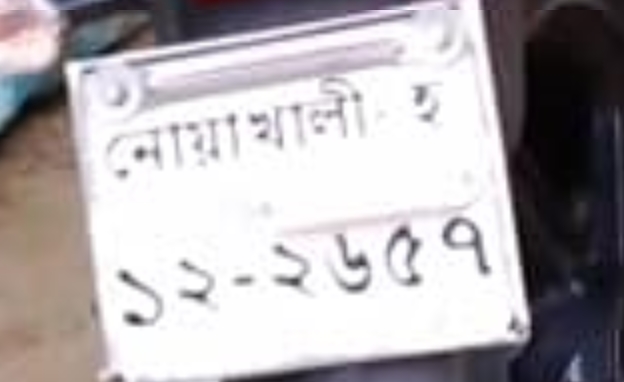 নোয়াখালী-হ
১২-২৬৫৭